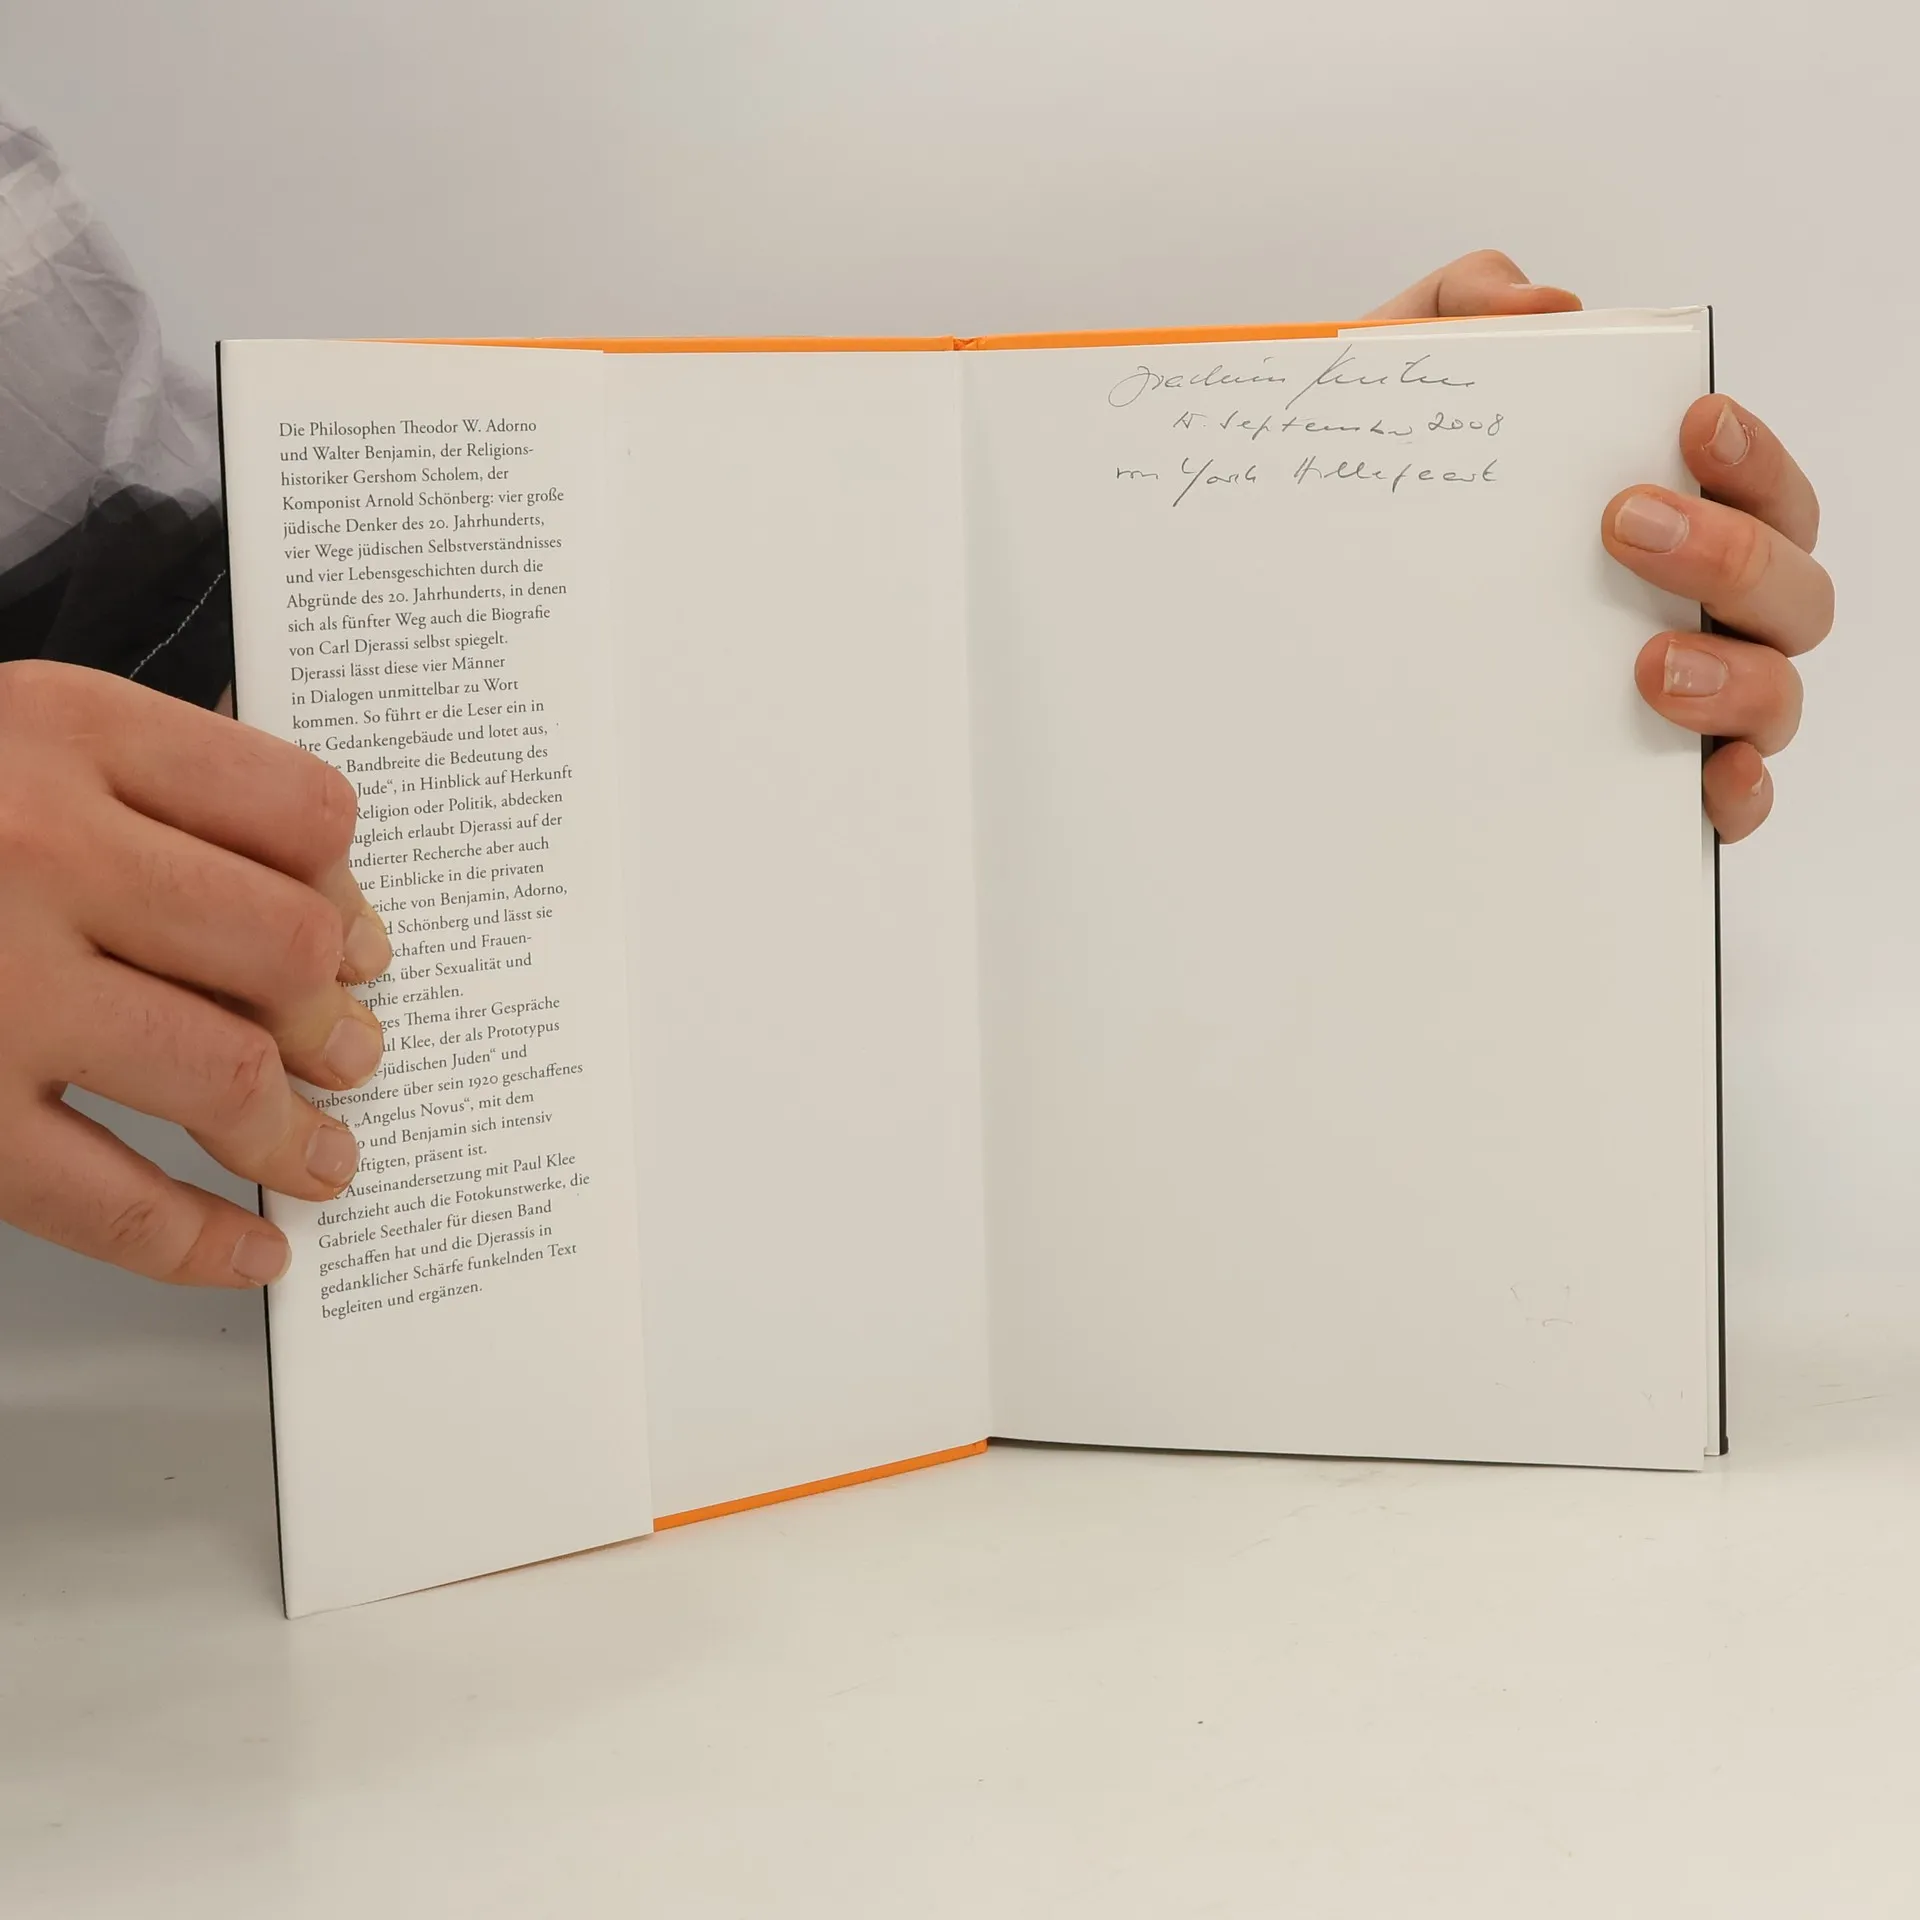 Die Philosophen Theodor W. Adorno
und Walter Benjamin, der Religions-
historiker Gershom Scholem, der
Komponist Arnold Schönberg: vier große
jüdische Denker des 20. Jahrhunderts,
vier Wege jüdischen Selbstverständnisses
und vier Lebensgeschichten durch die
Abgründe des 20. Jahrhunderts, in denen
sich als fünfter Weg auch die Biografie
von Carl Djerassi selbst spiegelt.
Djerassi lässt diese vier Männer
in Dialogen unmittelbar zu Wort
kommen. So führt er die Leser ein in
ihre Gedankengebäude und lotet aus,
Bandbreite die Bedeutung des
Jude“, in Hinblick auf Herkunft
Religion oder Politik, abdecken
ugleich erlaubt Djerassi auf der
ndierter Recherche aber auch
ue Einblicke in die privaten
eiche von Benjamin, Adorno,
d Schönberg und lässt sie
schaften und Frauen-
ngen, über Sexualität und
aphie erzählen.
ges Thema ihrer Gespräche
ul Klee, der als Prototypus
-jüdischen Juden“ und
insbesondere über sein 1920 geschaffenes
k „Angelus Novus“, mit dem
o und Benjamin sich intensiv
ftigten, präsent ist.
Auseinandersetzung mit Paul Klee
durchzieht auch die Fotokunstwerke, die
Gabriele Seethaler für diesen Band
geschaffen hat und die Djerassis in
gedanklicher Schärfe funkelnden Text
begleiten und ergänzen.
Joachim
September 2008
von York